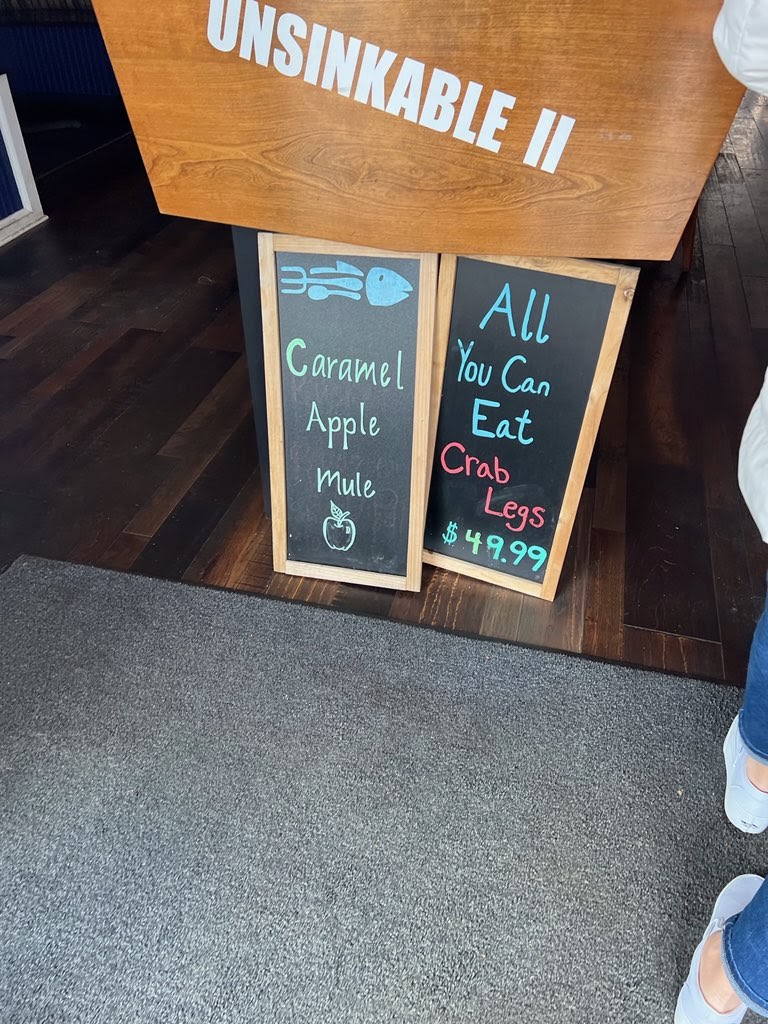 UNSINKABLE II
Caramel
Apple
Mule
All
You Can
Eat
Crab
Legs
$49.99